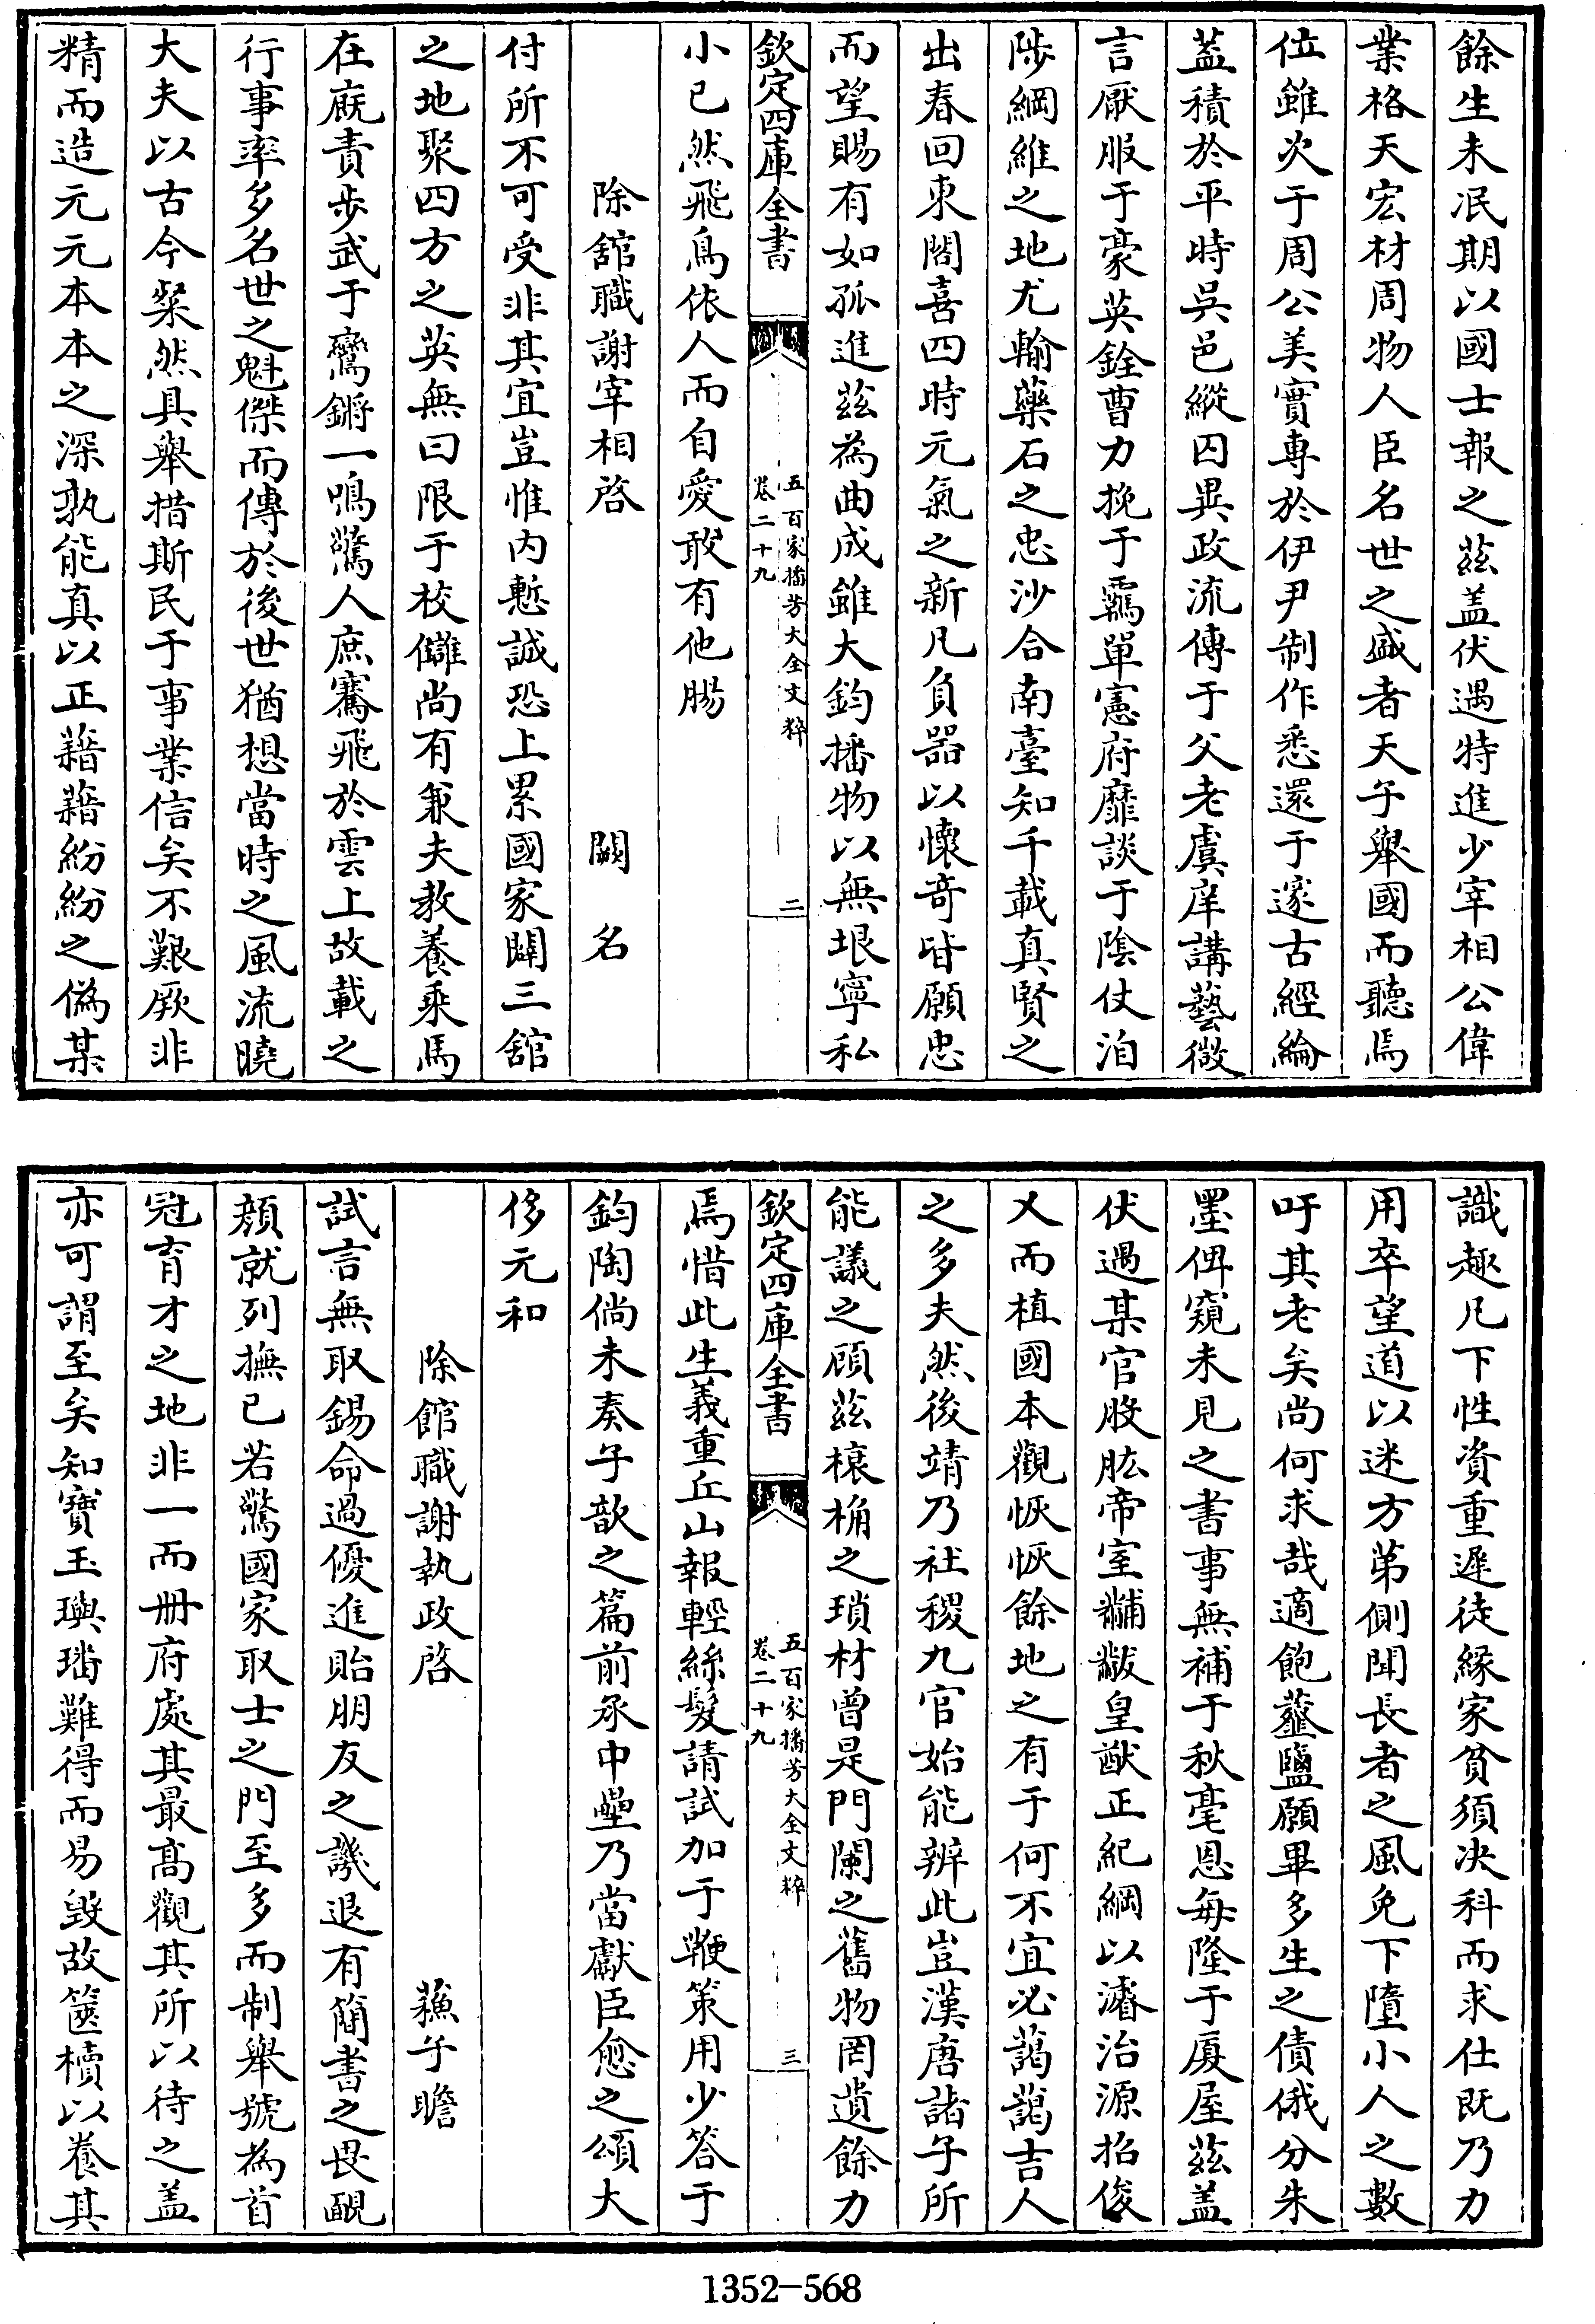 餘生未泯期以國士報之茲盖伏遇特進少宰相公偉
業格天宏材周物人臣名世之盛者天子舉國而聽焉
位雖次于周公美實專於伊尹制作悉還于邃古經綸
盖積於平時呉邑縱囚異政流傳于父老虞庠講藝微
言厭服于豪英銓曹力挽于覊單憲府靡談于陰仗洎
陟綱維之地尤輸藥石之忠沙合南臺知千載真賢之
出春回東閣喜四時元氣之新凡負器以懷竒皆願忠
而望賜有如孤進茲為曲成雖大鈞播物以無垠寧私
欽定四庫全書
五百家播芳大全文粹
卷二十九
二
小已然飛鳥依人而自愛敢有他腸
除舘職謝宰相啓 闕名
付所不可受非其宜豈惟内慙誠恐上累國家闢三舘
之地聚四方之英無曰限于校讎尚有兼夫教養乘馬
在廐責步武于鸞鏘一鳴驚人庶騫飛於雲上故載之
行事率多名世之魁傑而傳於後世猶想當時之風流曉
大夫以古今粲然具舉措斯民于事業信矣不艱厥非
精而造元元本本之深孰能真以正藉藉紛紛之僞某
識趣凡下性資重遲徒緣家貧須决科而求仕既乃力
用卒望道以迷方弟側聞長者之風免下墮小人之數
吁其老矣尚何求哉適飽虀鹽願畢多生之債俄分朱
墨俾窺未見之書事無補于秋毫恩每隆于厦屋茲盖
伏遇某官股肱帝室黼黻皇猷正紀綱以濬治源招俊
乂而植國本觀恢恢餘地之有于何不宜必藹藹吉人
之多夫然後靖乃社稷九官始能辨此豈漢唐諸子所
能議之顧茲榱桷之瑣材曾是門闌之舊物罔遺餘力
欽定四庫全書
五百家播芳大全文粹
卷二十九
三
焉惜此生義重丘山報輕絲髮請試加于鞭策用少答于
鈞陶倘未奏子歆之篇前承中壘乃當獻臣愈之頌大
侈元和
除館職謝執政啓 蘓子瞻
試言無取錫命過優進貽朋友之譏退有簡書之畏靦
顔就列撫已若驚國家取士之門至多而制舉號為首
冠育才之地非一而冊府處其最髙觀其所以待之盖
亦可謂至矣知寳玉璵璠難得而易毁故篋櫝以養其
1352-568